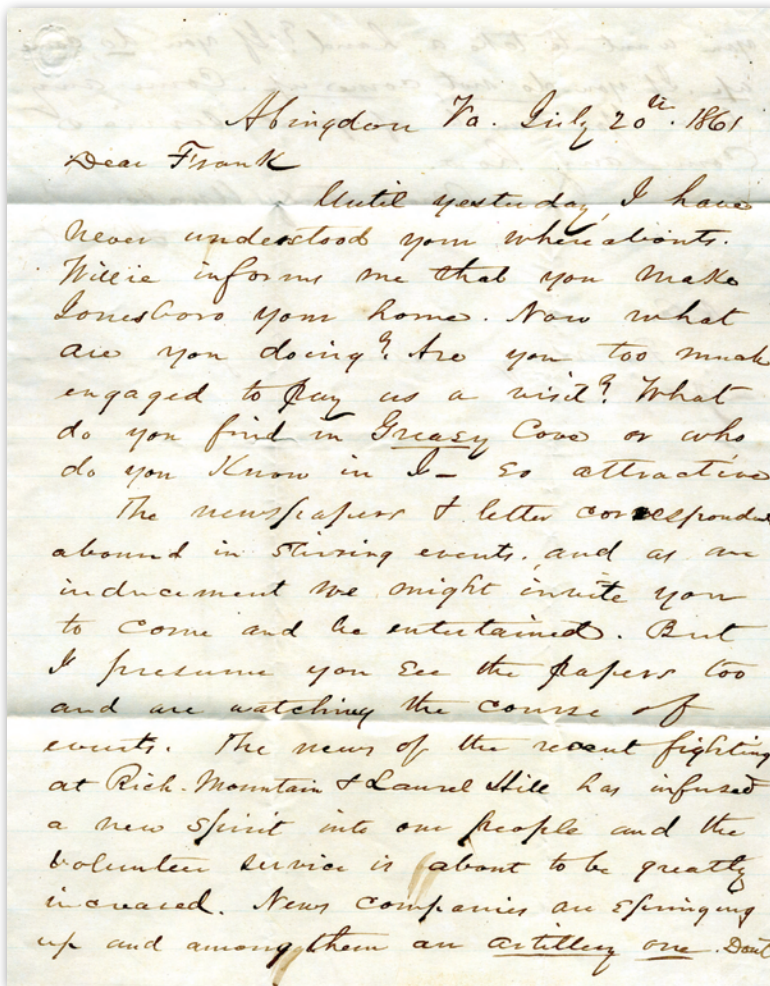 Abingdon Va. July 20th. 1861
Dear Frank
Until yesterday, I have
never understood your whereabouts.
Willie informs me that you make
Jonesboro your home. Now what
are you doing? Are you too much
engaged to pay us a visit? What
do you find in Greasy Cove or who
do you Know in J— so attractive
The newspapers & letter correspondence
abound in stirring events, and as an
inducement we might invite you
to come and be entertained. But
I presume you see the papers too
and are watching the course of
events. The news of the recent fighting
at Rich-Mountain & Laurel Hill has infused
a new spirit into our people and the
volunteer service is about to be greatly
increased. New companies are springing
up and among them an artillery one. Dont